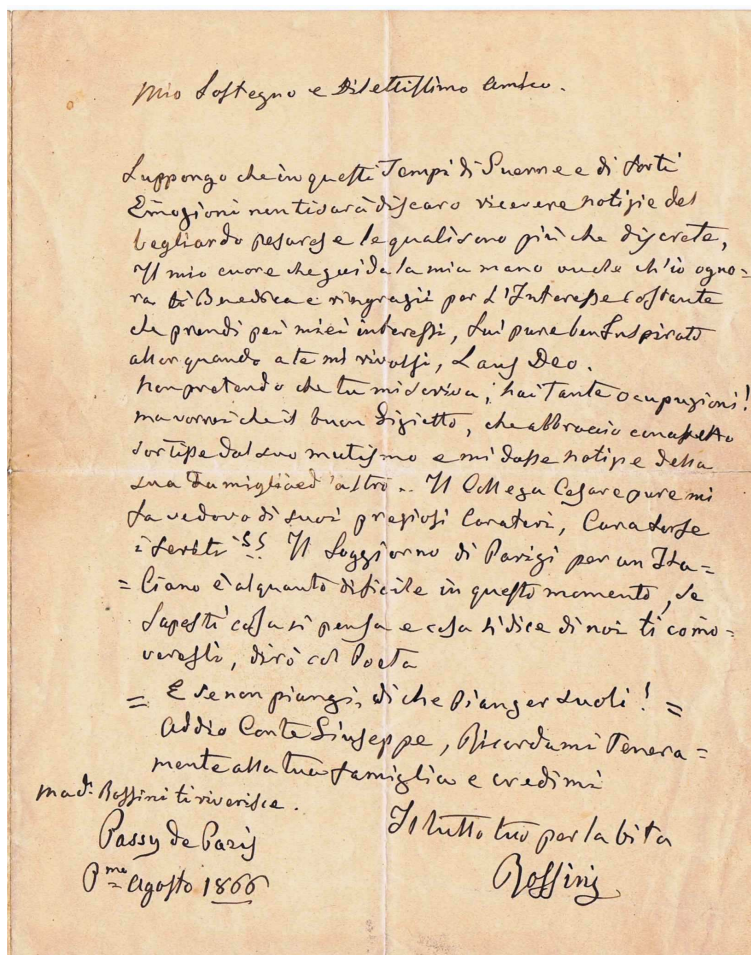 Mio Sostegno e Dilettissimo Amico.
Suppongo che in questi Tempi di Guerre e di forti
Emozioni non ti sarà discaro ricevere notizie del
begliardo pesarese le quali sono più che discrete,
Il mio cuore che guida la mia mano vuole ch'io ogno=
ra ti Benedica e ringrazii per L'Interesse costante
che prendi pei miei interessi, fui pure ben Inspirato
allor quando a te mi rivolsi, Laus Deo.
Non pretendo che tu mi scriva, hai Tante ocupazioni!
ma vorrei che il buon Gigietto, che abbraccio con affetto
sortisse dal suo mutismo e mi dasse notizie della
sua Famiglia ed altro.. Il Collega Cesare pure mi
fa vedovo di suoi preziosi Carateri,
Il Soggiorno di Parigi per un Ita=
= liano è alquanto dificile in questo momento, se
Sapesti cosa si pensa e cosa si dice di noi ti como-
veresti, dirò col Poeta
= E se non piangi, di che Pianger suoli! =
Addio Conte Giuseppe, Ricordami Tenera=
mente alla tua famiglia e credimi
mad. Rossini ti riverisce.
Il tutto tuo per la vita
Rossini
Passy de Paris
P.me Agosto 1866